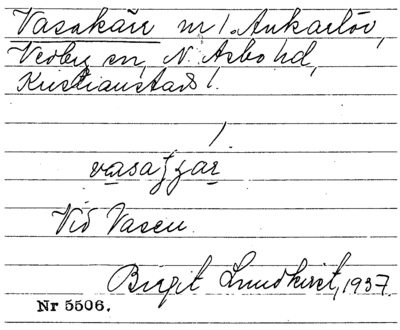 Vasakärr m l. Ankarlöv,
Vedby sn, N. Åsbo hd,
Kristianstads l.
Vid Vasen.
Birgit Lundkvist, 1937.
Nr 5506.